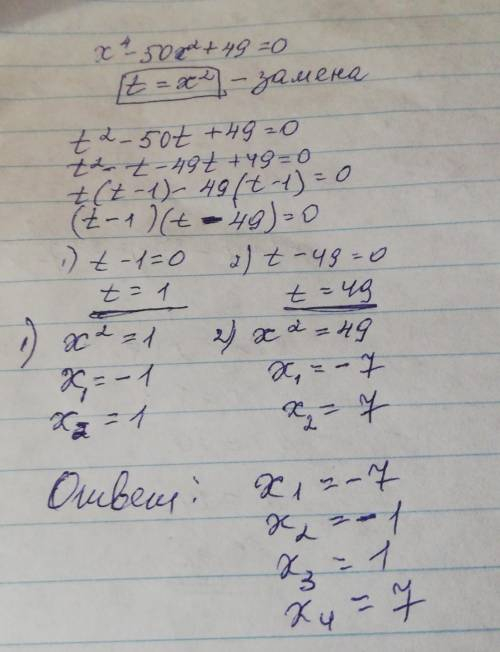 x⁴ - 50x² + 49 = 0
t = x² - замена
t² - 50t + 49 = 0
t² - t - 49t + 49 = 0
t(t - 1) - 49(t - 1) = 0
(t - 1)(t - 49) = 0
1) t - 1 = 0 2) t - 49 = 0
t = 1 t = 49
1) x² = 1 2) x² = 49
x₁ = -1 x₁ = -7
x₂ = 1 x₂ = 7
Ответ: x₁ = -7
x₂ = -1
x₃ = 1
x₄ = 7